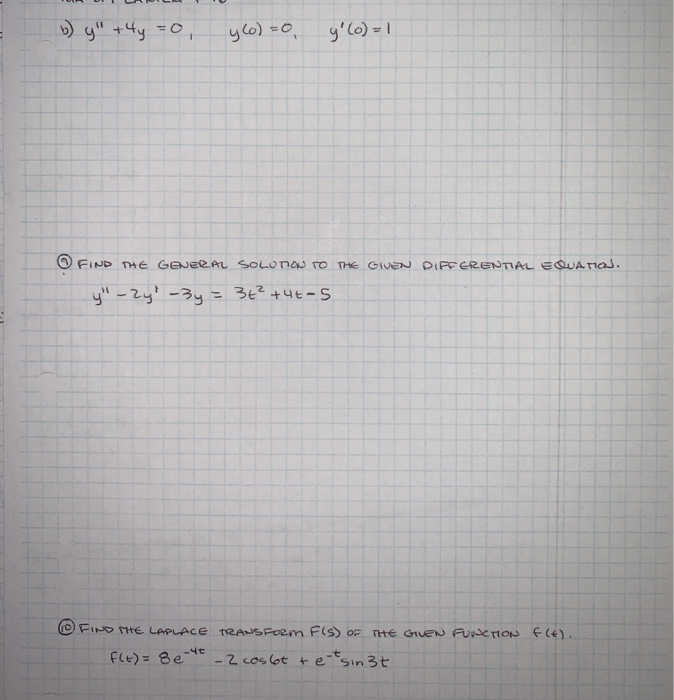 b) y" + 4y = 0, y(0) = 0, y'(0) = 1
⑨ FIND THE GENERAL SOLUTION TO THE GIVEN DIFFERENTIAL EQUATION.
y" - 2y' - 3y = 3t² + 4t - 5
⑩ FIND THE LAPLACE TRANSFORM F(S) OF THE GIVEN FUNCTION f(t).
f(t) = 8e⁻⁴ᵗ - 2 cos 6t + e⁻ᵗ sin 3t